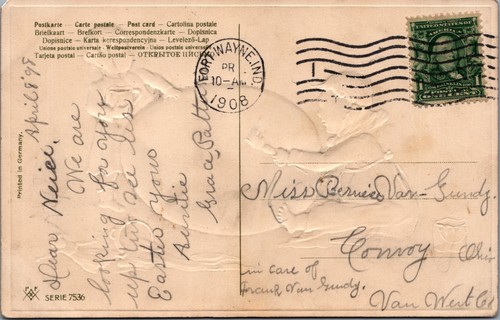 Postkarte – Carte postale – Post card – Cartolina postale
Brielkaart – Brefkort – Correspondenzkarte – Dopisnica
Dopisnice – Karta korespondencyjna – Levelező-Lap
Unions postale universelle – Weltpostverein – Union postale universelle
Tarjeta postal – Cartão postal – ОТКРЫТОЕ ПИСЬМО
FORT WAYNE, IND.
PR
10-AM
1908
April 8 '08
Dear Neice,
We are
looking for you
up to see us
Easter yours
Auntie
Grace Patten
Miss Bernice Van-Gundy.
Convoy, Ohio
in care of
Frank Van Gundy.
Van Wert Co
Printed in Germany.
SERIE 7536